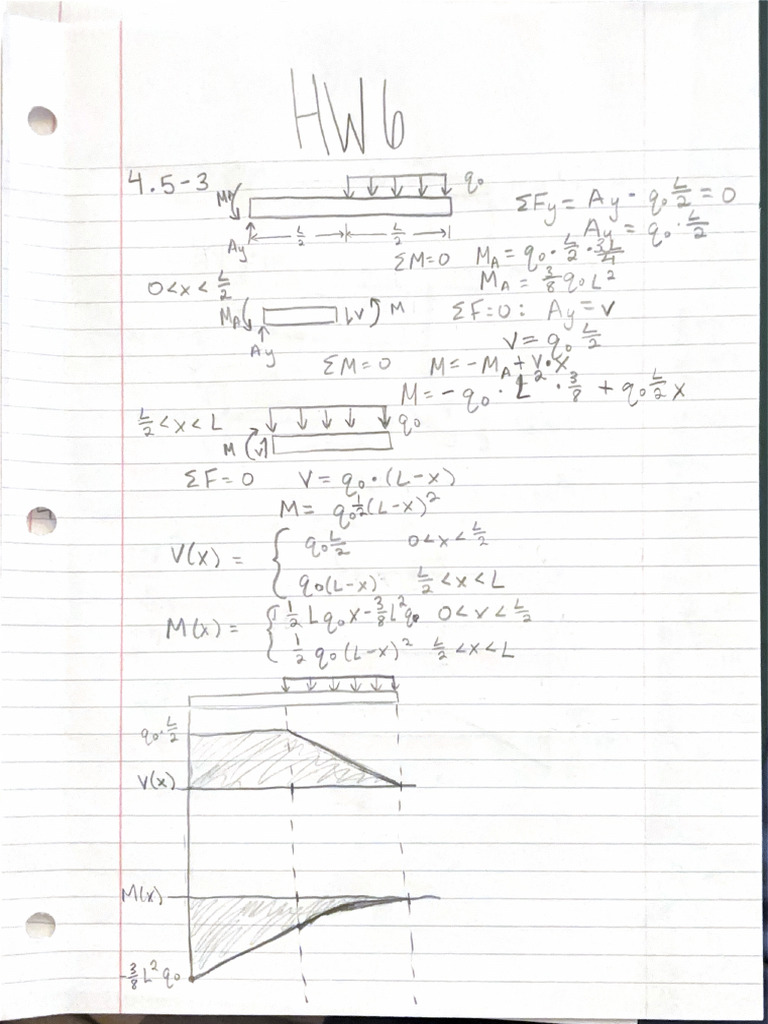 HW6
4.5-3
q₀
M_A
ΣFy = Ay - q₀ L/2 = 0
Ay = q₀ · L/2
Ay
L/2
L/2
ΣM=0 M_A = q₀ · L/2 · 3L/4
M_A = 3/8 q₀L²
0<x<L/2
M_A V M
Ay
ΣF=0: Ay = V
V = q₀ L/2
ΣM=0 M = -M_A + V·x
M = -q₀ · L² · 3/8 + q₀ L/2 x
L/2 < x < L
q₀
M V
ΣF=0 V = q₀ · (L-x)
M = q₀ 1/2 (L-x)²
V(x) = { q₀ L/2 0<x<L/2
q₀(L-x) L/2 < x < L
M(x) = { 1/2 L q₀ x - 3/8 L² q₀ 0<x<L/2
1/2 q₀ (L-x)² L/2 < x < L
q₀ · L/2
V(x)
M(x)
-3/8 L² q₀